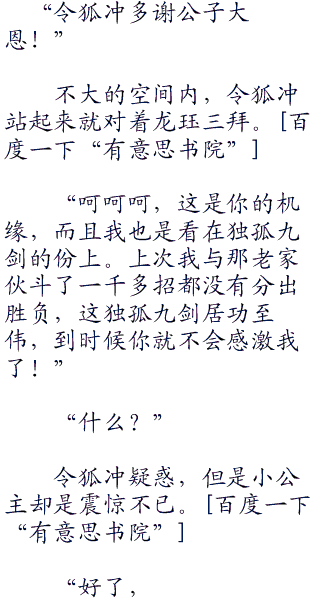 “令狐冲多谢公子大
恩！”
不大的空间内，令狐冲
站起来就对着龙珏三拜。[百
度一下“有意思书院”]
“呵呵呵，这是你的机
缘，而且我也是看在独孤九
剑的份上。上次我与那老家
伙斗了一千多招都没有分出
胜负，这独孤九剑居功至
伟，到时候你就不会感激我
了！”
“什么？”
令狐冲疑惑，但是小公
主却是震惊不已。[百度一下
“有意思书院”]
“好了，